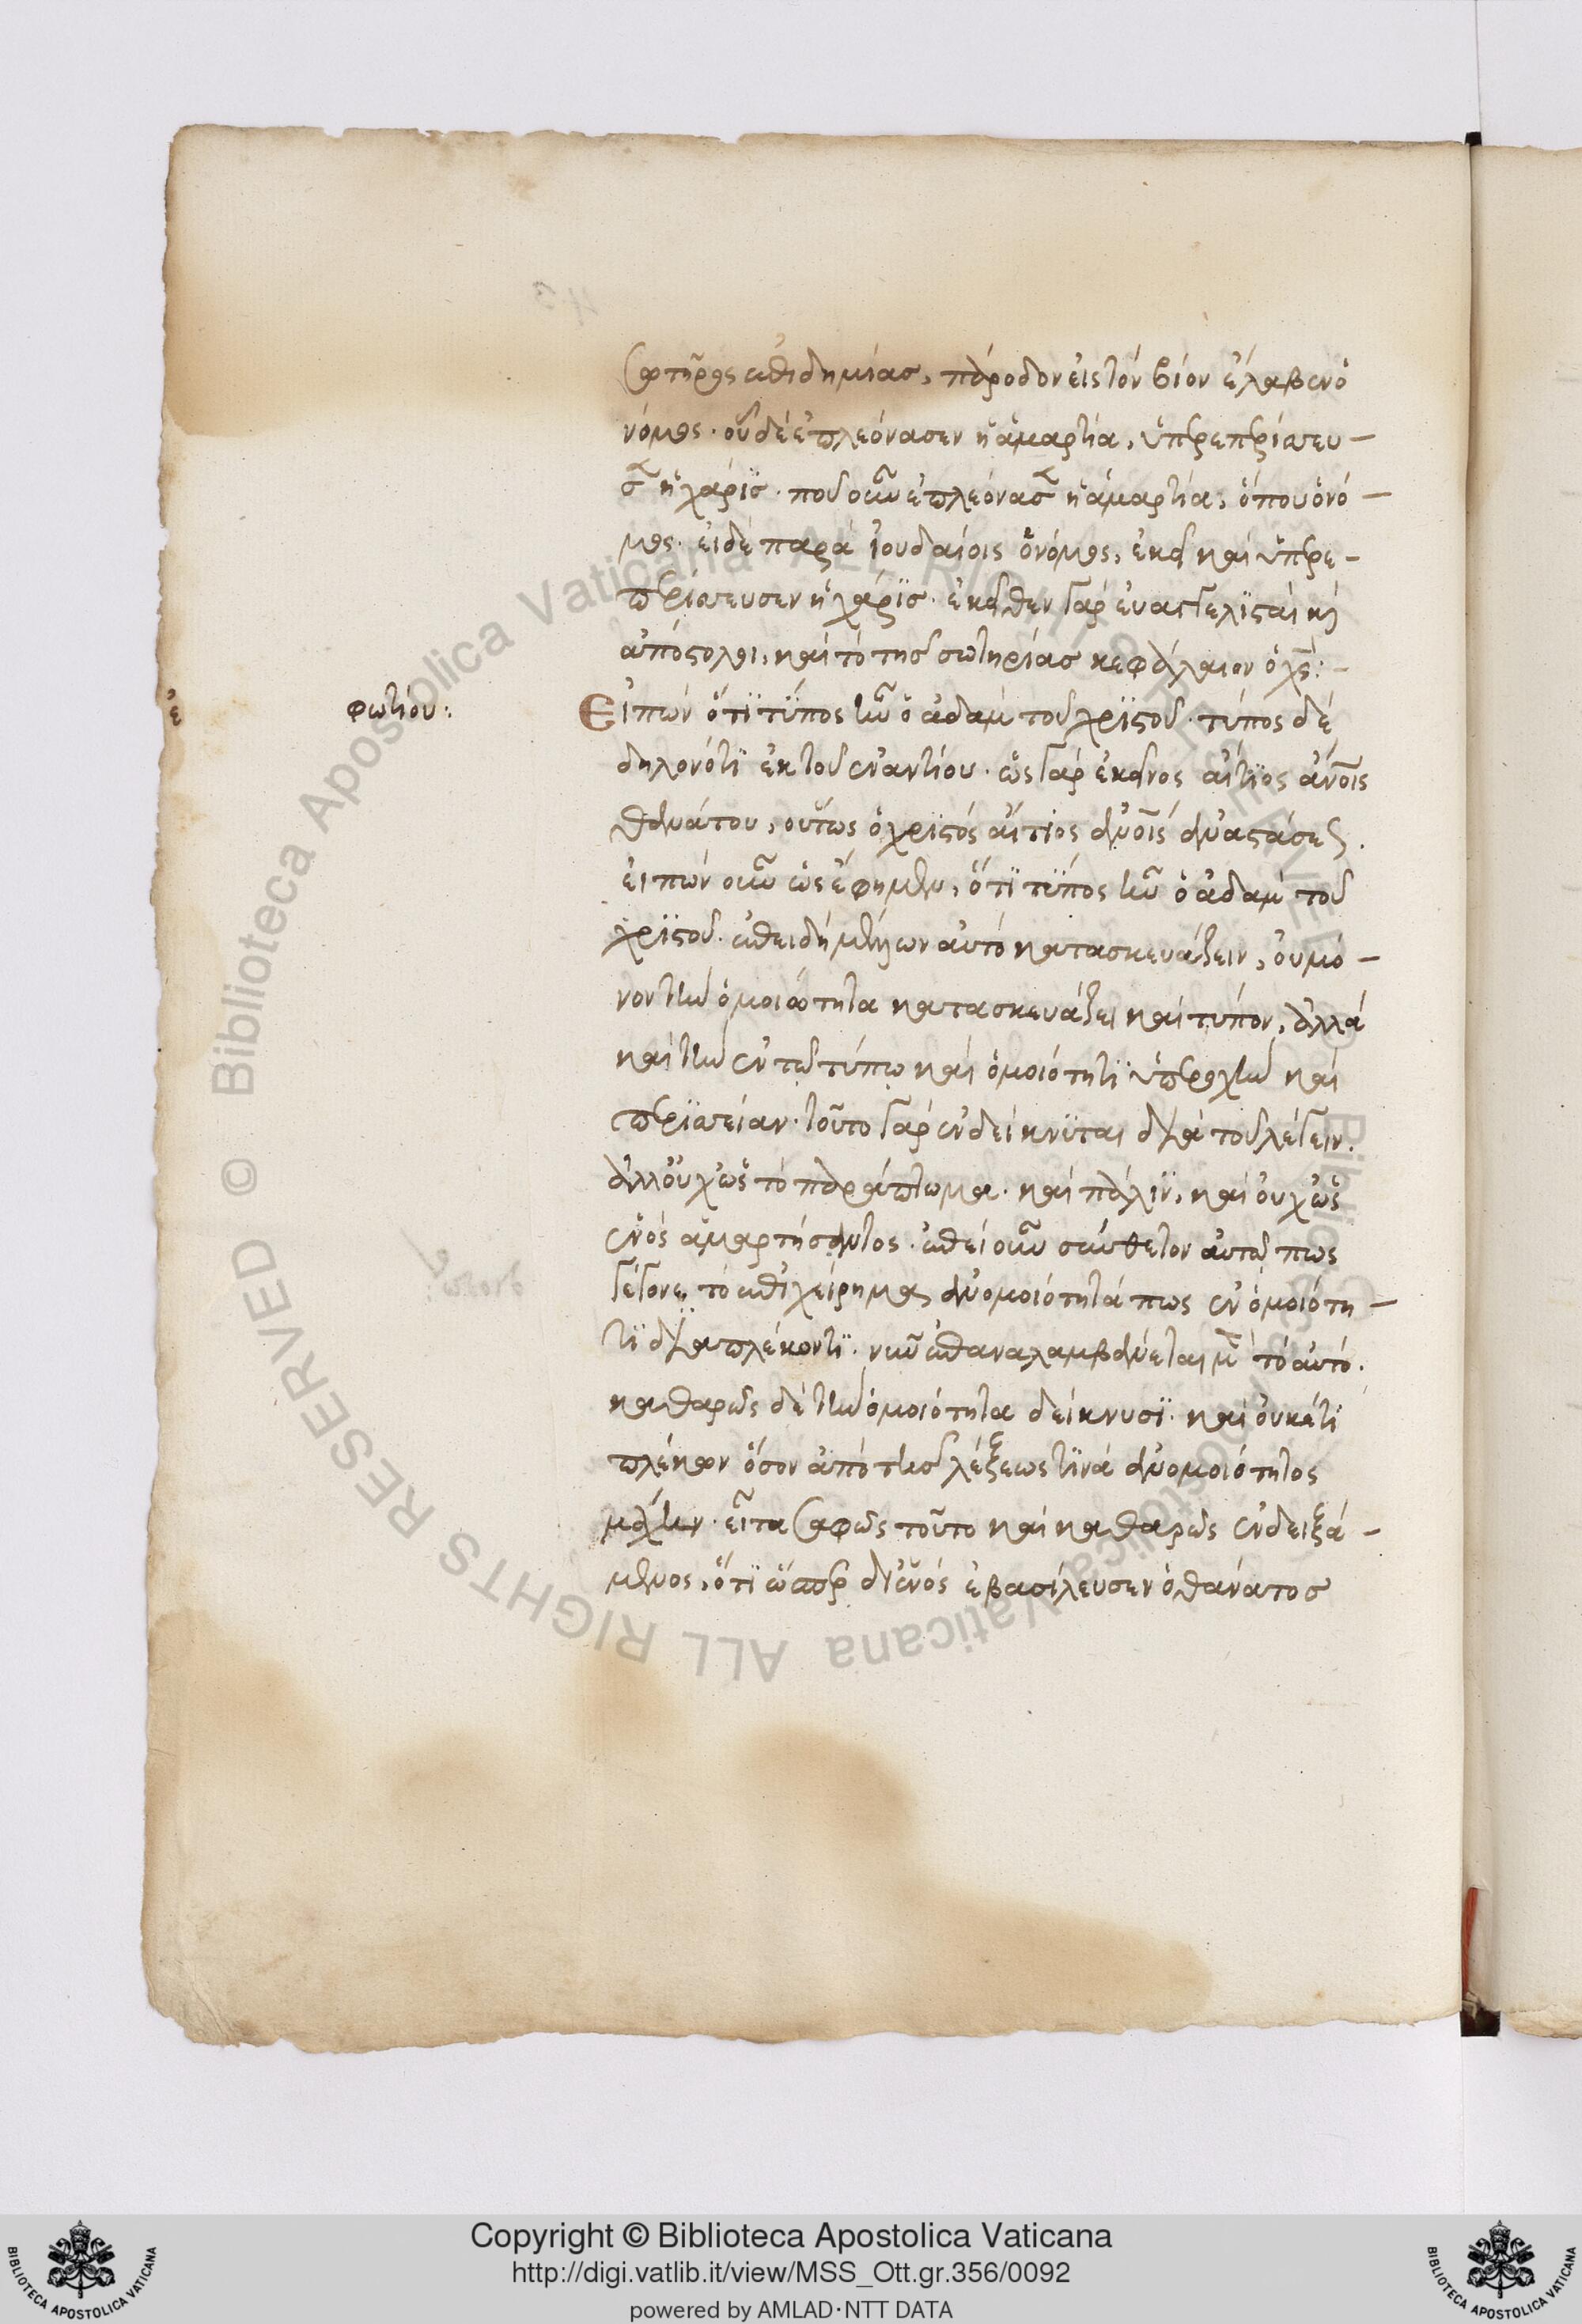 σωτῆρος ἐπιδημίας, πάροδον εἰς τὸν βίον ἔλαβεν ὁ
νόμος· οὗ δὲ ἐπλεόνασεν ἡ ἁμαρτία, ὑπερεπερίσσευ-
σεν ἡ χάρις· ποῦ οὖν ἐπλεόνασεν ἡ ἁμαρτία, ὅπου ὁ νό-
μος· εἰ δὲ παρὰ ἰουδαίοις ὁ νόμος, ἐκεῖ καὶ ὑπερε-
περίσσευσεν ἡ χάρις· ἐκεῖθεν γὰρ εὐαγγελισταὶ καὶ
ἀπόστολοι, καὶ τὸ τῆς σωτηρίας κεφάλαιον ὁ χς:-
φωτίου:
Εἰπὼν ὅτι τύπος ἦν ὁ ἀδὰμ τοῦ χριστοῦ· τύπος δὲ
δηλονότι ἐκ τοῦ ἐναντίου· ὡς γὰρ ἐκεῖνος αἴτιος ἀνοις
θανάτου, οὕτως ὁ χριστὸς αἴτιος ἀνοις ἀναστάσεως.
εἰπὼν οὖν ὡς ἔφημεν, ὅτι τύπος ἦν ὁ ἀδὰμ τοῦ
χριστοῦ· ἐπειδὴ μέλλων αὐτὸ κατασκευάζειν, οὐ μό-
νον τὴν ὁμοιότητα κατασκευάζει καὶ τύπον, ἀλλὰ
καὶ τὴν ἐν τῷ τύπῳ καὶ ὁμοιότητι ὑπεροχὴν καὶ
περισσείαν· τοῦτο γὰρ ἐνδείκνυται διὰ τοῦ λέγειν.
ἀλλ' οὐχ ὡς τὸ παράπτωμα· καὶ πάλιν, καὶ οὐχ ὡς
ἑνὸς ἁμαρτήσαντος· ἐπεὶ οὖν σύνθετον αὐτῷ πως
γέγονε τὸ ἐπιχείρημα, ἀνομοιότητά πως ἐν ὁμοιότη-
τι διαπλέκοντι· νῦν ἐπαναλαμβάνεται μὲν τὸ αὐτό·
καθαρῶς δὲ τὴν ὁμοιότητα δείκνυσι· καὶ οὐκέτι
πλέκων ὅσον ἀπὸ τῆς λέξεως τινὰ ἀνομοιότητος
εἶτα σαφῶς τοῦτο καὶ καθαρῶς ἐνδειξά-
μενος, ὅτι ὥσπερ δι' ἑνὸς ἐβασίλευσεν ὁ θάνατος
Copyright © Biblioteca Apostolica Vaticana
http://digi.vatlib.it/view/MSS_Ott.gr.356/0092
powered by AMLAD·NTT DATA